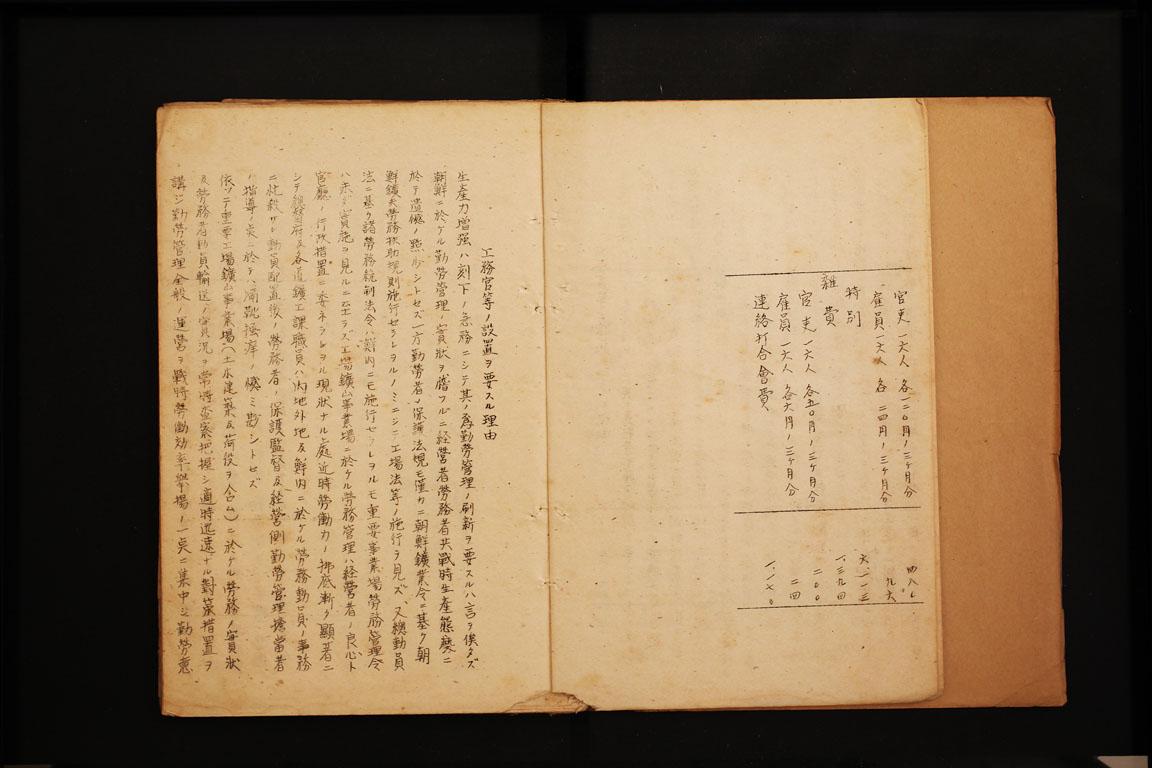 官吏 一六人 各一二〇円ノ三ヶ月分
雇員 一六人 各 二四円ノ三ヶ月分
特別
雜費
官吏 一六人 各五〇円ノ三ヶ月分
雇員 一六人 各六円ノ三ヶ月分
連絡打合會費
四八〇
九六
六、一一三
一、三九四
二〇〇
二四
一、一七〇
工務官等ノ設置ヲ要スル理由
生產力增强ハ刻下ノ急務ニシテ其ノ爲勤勞管理ノ刷新ヲ要スルハ言ヲ俟タズ
朝鮮ニ於ケル勤勞管理ノ實狀ヲ ルニ経營者勞務者共戰時生產態勢ニ
於テ遺憾ノ點少シトセズ一方勤勞者ノ保護法規モ僅カニ朝鮮鑛業令ニ基ク朝
鮮鑛夫勞務扶助規則施行セラレヲルノミニシテ工場法等ノ施行ヲ見ズ、又總動員
法ニ基ク諸勞務統制法令ハ鮮內ニモ施行セラレヲルモ重要事業場勞務管理令
ハ未ダ實施ヲ見ルニ至ラズ工場鑛山事業場ニ於ケル勞務管理ハ経營者ノ良心ト
官廳ノ行政措置ニ委ネラレヲル現狀ナル處近時勞働力ノ拂底漸ク顯著ニ
シテ總督府及各道鑛工課職員ハ內地外地及鮮內ニ於ケル勞務動員ノ事務
ニ忙殺サレ動員配置後ノ勞務者ノ保護監督及経營側勤勞管理擔當者
ノ指導ノ点ニ於テハ隔靴搔痒ノ憾ミ尠シトセズ
依ツテ重要工場鑛山事業場(土木建築及荷役ヲ含ム)ニ於ケル勞務ノ實狀
及勞務者動員輸送ノ實況ヲ常時査察把握シ適時迅速ナル對策措置ヲ
講ジ勤勞管理全般ノ運營ヲ戰時勞働効率擧揚ノ一点ニ集中シ勤勞意